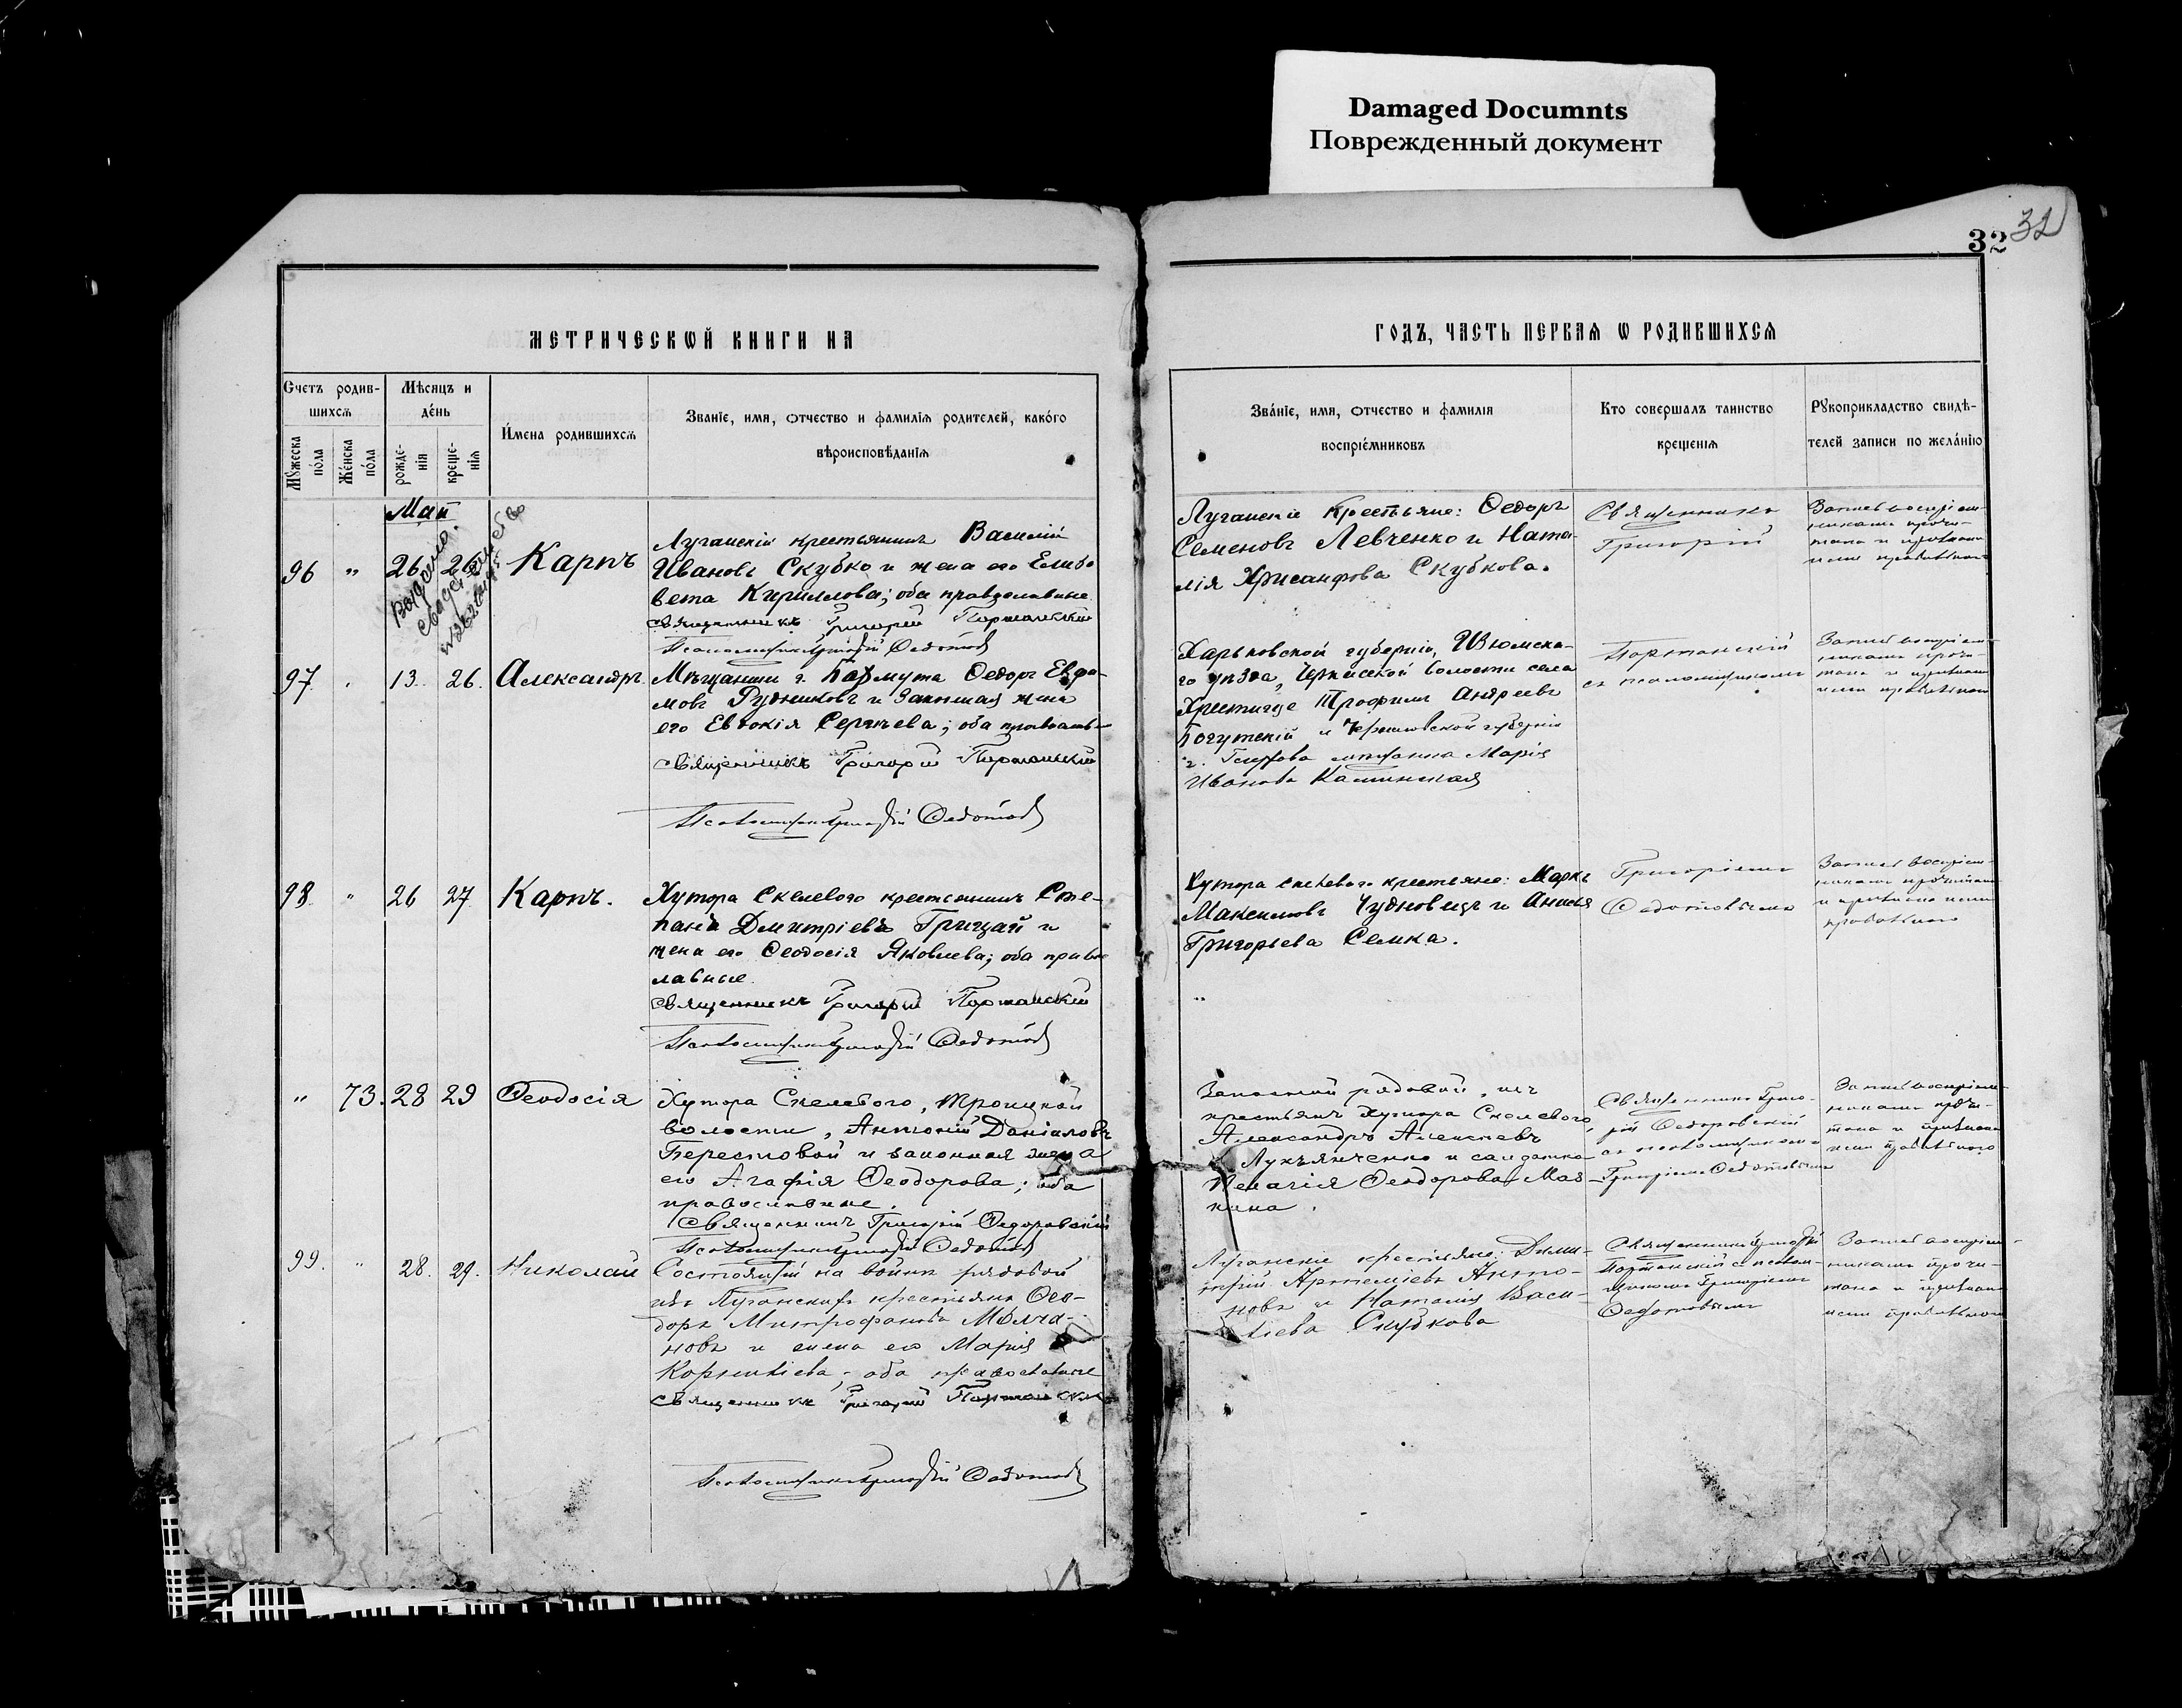 Damaged Documnts
Поврежденный документ
32
32
МЕТРИЧЕСКОЙ КНИГИ НА
ГОДЪ, ЧАСТЬ ПЕРВАЯ Ѡ РОДИВШИХСЯ
Счетъ родив-
шихся
Мѣсяцъ и
де́нь
И́мена родившихся
Званіе, имя, отчество и фамилія родителей, како́го
вѣроисповѣ́данія
Мужеска
по́ла
Же́нска
по́ла
рожде-
нія
креще-
нія
Зва́ніе, имя, отчество и фамилія
воспріе́мниковъ
Кто совершалъ таинство
крещенія
Рукоприкладство свидѣ-
телей записи по жела́нію
Май
96 " 26 26 Карпъ
Луганскій крестьянинъ Василій
Ивановъ Скубко и жена его Елиса
вета Кириллова; оба православные
священникъ Григорій Портанскій
Псаломщикъ Григорій Федотов
Луганскіе крестьяне: Ѳедоръ
Семеновъ Левченко и Ната-
лія Хрисанфова Скубкова.
Священникъ
Григорій
Запись воспріем-
никамъ прочи-
тана и признана
ими правильною
97 13. 26. Александръ
Мѣщанинъ г. Бахмута Ѳедоръ Евдо-
мовъ Рудниковъ и законная жена
его Евдокія Сергѣева; оба правосл.
священникъ Григорій Портанскій
Псаломщикъ Григорій Федотов
Харьковской губерніи, Изюмска-
го уѣзда, Черкасской волости села
Хрестище Трофимъ Андреевъ
Богутскій и Черниговской губерніи
г. Глухова мѣщанка Марія
Иванова Калинская
Портанскій
съ псаломщикомъ
Запись воспріем-
никамъ прочи-
тана и признана
ими правильною
98 " 26 27 Карпъ.
Хутора Скелевого крестьянинъ Сте-
панъ Дмитріевъ Грицай и
жена его Ѳеодосія Яковлева; оба право
лавные.
священникъ Григорій Портанскій
Псаломщикъ Григорій Федотов
Хутора Скелевого крестьяне: Маркъ
Максимовъ Чудновецъ и Анисья
Григорьева Семка.
Григоріемъ
Федотовымъ
Запись воспріем-
никамъ прочитана
и признана ими
правильною
" 73. 28 29 Ѳеодосія
Хутора Скелевого, Троицкой
волости, Антоній Даніиловъ
Берестовой и законная жена
его Агафія Ѳеодорова; оба
православные.
Священникъ Григорій Федоровскій
Псаломщикъ Григорій Федотов
Запасной рядовой, изъ
крестьянъ Хутора Скелевого,
Александръ Алексеевъ
Лукъянченко и солдатка
Пелагія Ѳеодорова Маз
кина.
Священникъ Григо-
рій Федоровскій
съ псаломщикомъ
Григоріемъ Федотовымъ
Запись воспріем-
никамъ прочи-
тана и признана
ими правильною
99. " 28. 29. Николай
Состоящій на войнѣ рядовой
изъ Луганскихъ крестьянъ Ѳео-
доръ Митрофановъ Молча-
новъ и жена его Марія
Корнильева; оба православные
священникъ Григорій Портанскій
Псаломщикъ Григорій Федотов
Луганскіе крестьяне: Дими-
трій Артеміевъ Анто-
новъ и Наталія Васи-
ліева Скубкова
Священникъ Григорій
Портанскій съ псалом-
щикомъ Григоріемъ
Федотовымъ
Запись воспріем-
никамъ прочи-
тана и признана
ими правильною